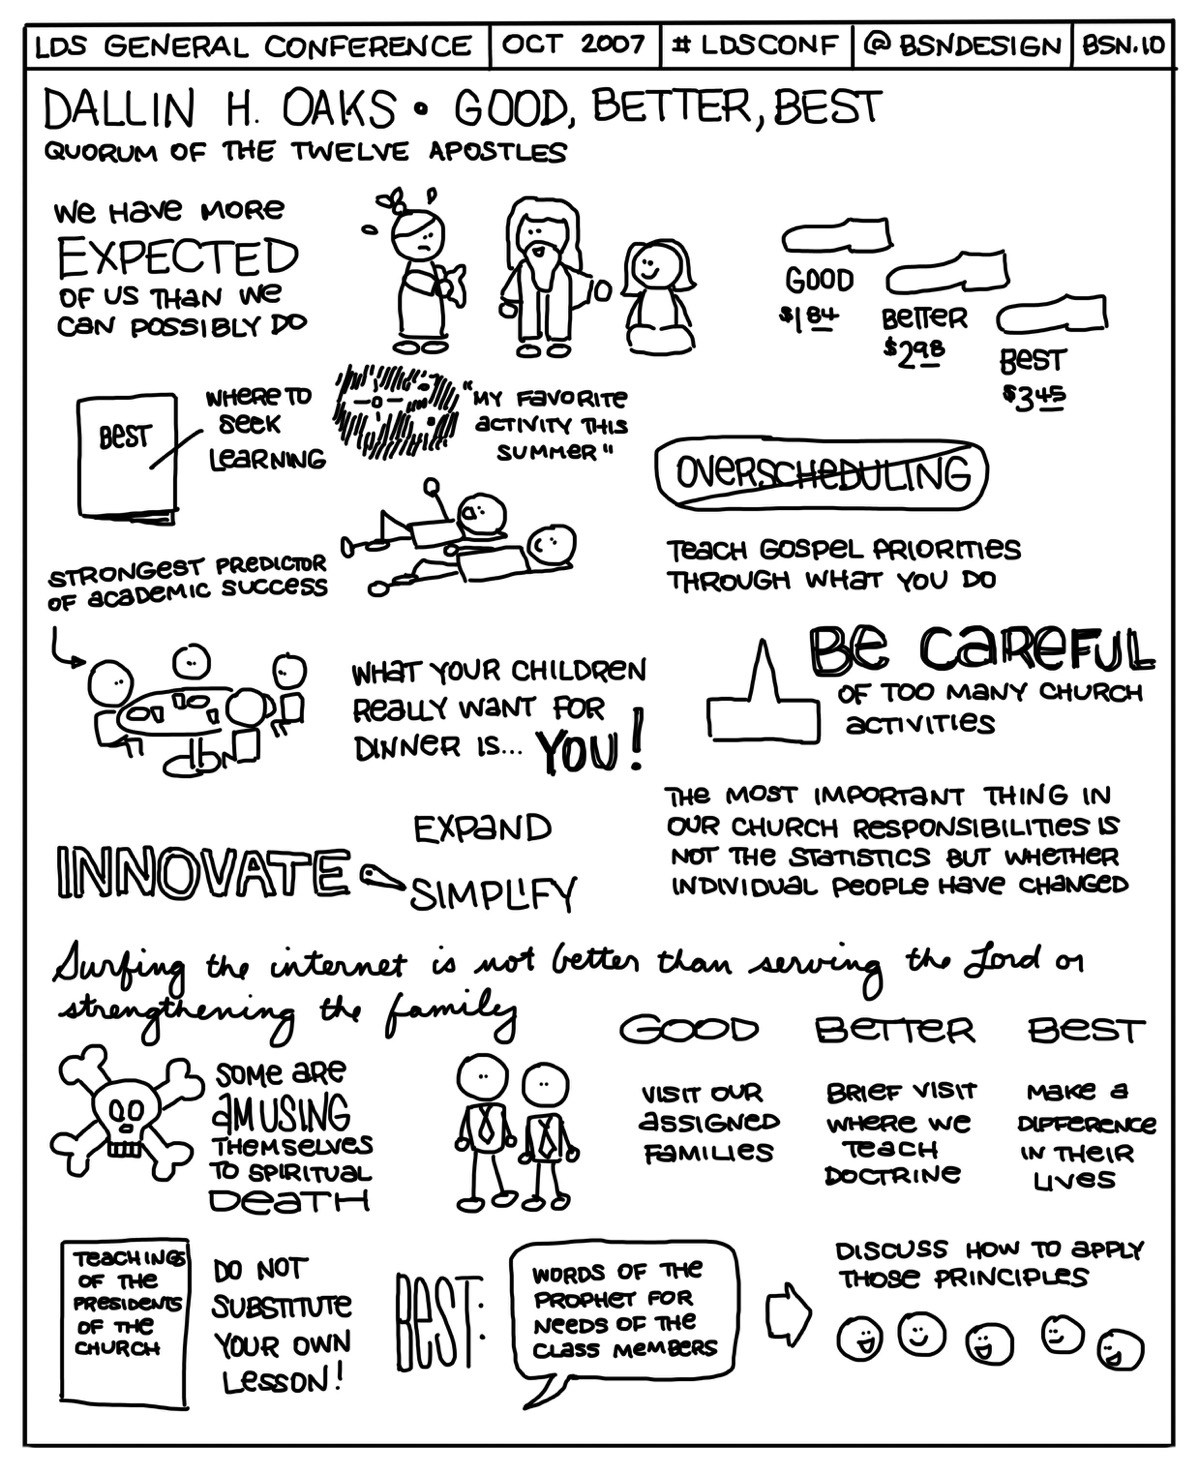 LDS GENERAL CONFERENCE OCT 2007 # LDSCONF @ BSNDESIGN BSN.IO
DALLIN H. OAKS • GOOD, BETTER, BEST
QUORUM OF THE TWELVE APOSTLES
WE HAVE MORE
EXPECTED
OF US THAN WE
CAN POSSIBLY DO
GOOD
$1 84
BETTER
$2 98
BEST
$3 45
BEST
WHERE TO
SEEK
LEARNING
"MY FAVORITE
ACTIVITY THIS
SUMMER"
OVERSCHEDULING
TEACH GOSPEL PRIORITIES
THROUGH WHAT YOU DO
STRONGEST PREDICTOR
OF ACADEMIC SUCCESS
WHAT YOUR CHILDREN
REALLY WANT FOR
DINNER IS... YOU!
BE CAREFUL
OF TOO MANY CHURCH
ACTIVITIES
INNOVATE
EXPAND
SIMPLIFY
THE MOST IMPORTANT THING IN
OUR CHURCH RESPONSIBILITIES IS
NOT THE STATISTICS BUT WHETHER
INDIVIDUAL PEOPLE HAVE CHANGED
Surfing the internet is not better than serving the Lord or
strengthening the family
SOME ARE
AMUSING
THEMSELVES
TO SPIRITUAL
DEATH
GOOD
VISIT OUR
ASSIGNED
FAMILIES
BETTER
BRIEF VISIT
WHERE WE
TEACH
DOCTRINE
BEST
MAKE A
DIFFERENCE
IN THEIR
LIVES
TEACHINGS
OF THE
PRESIDENTS
OF THE
CHURCH
DO NOT
SUBSTITUTE
YOUR OWN
LESSON!
BEST:
WORDS OF THE
PROPHET FOR
NEEDS OF THE
CLASS MEMBERS
DISCUSS HOW TO APPLY
THOSE PRINCIPLES